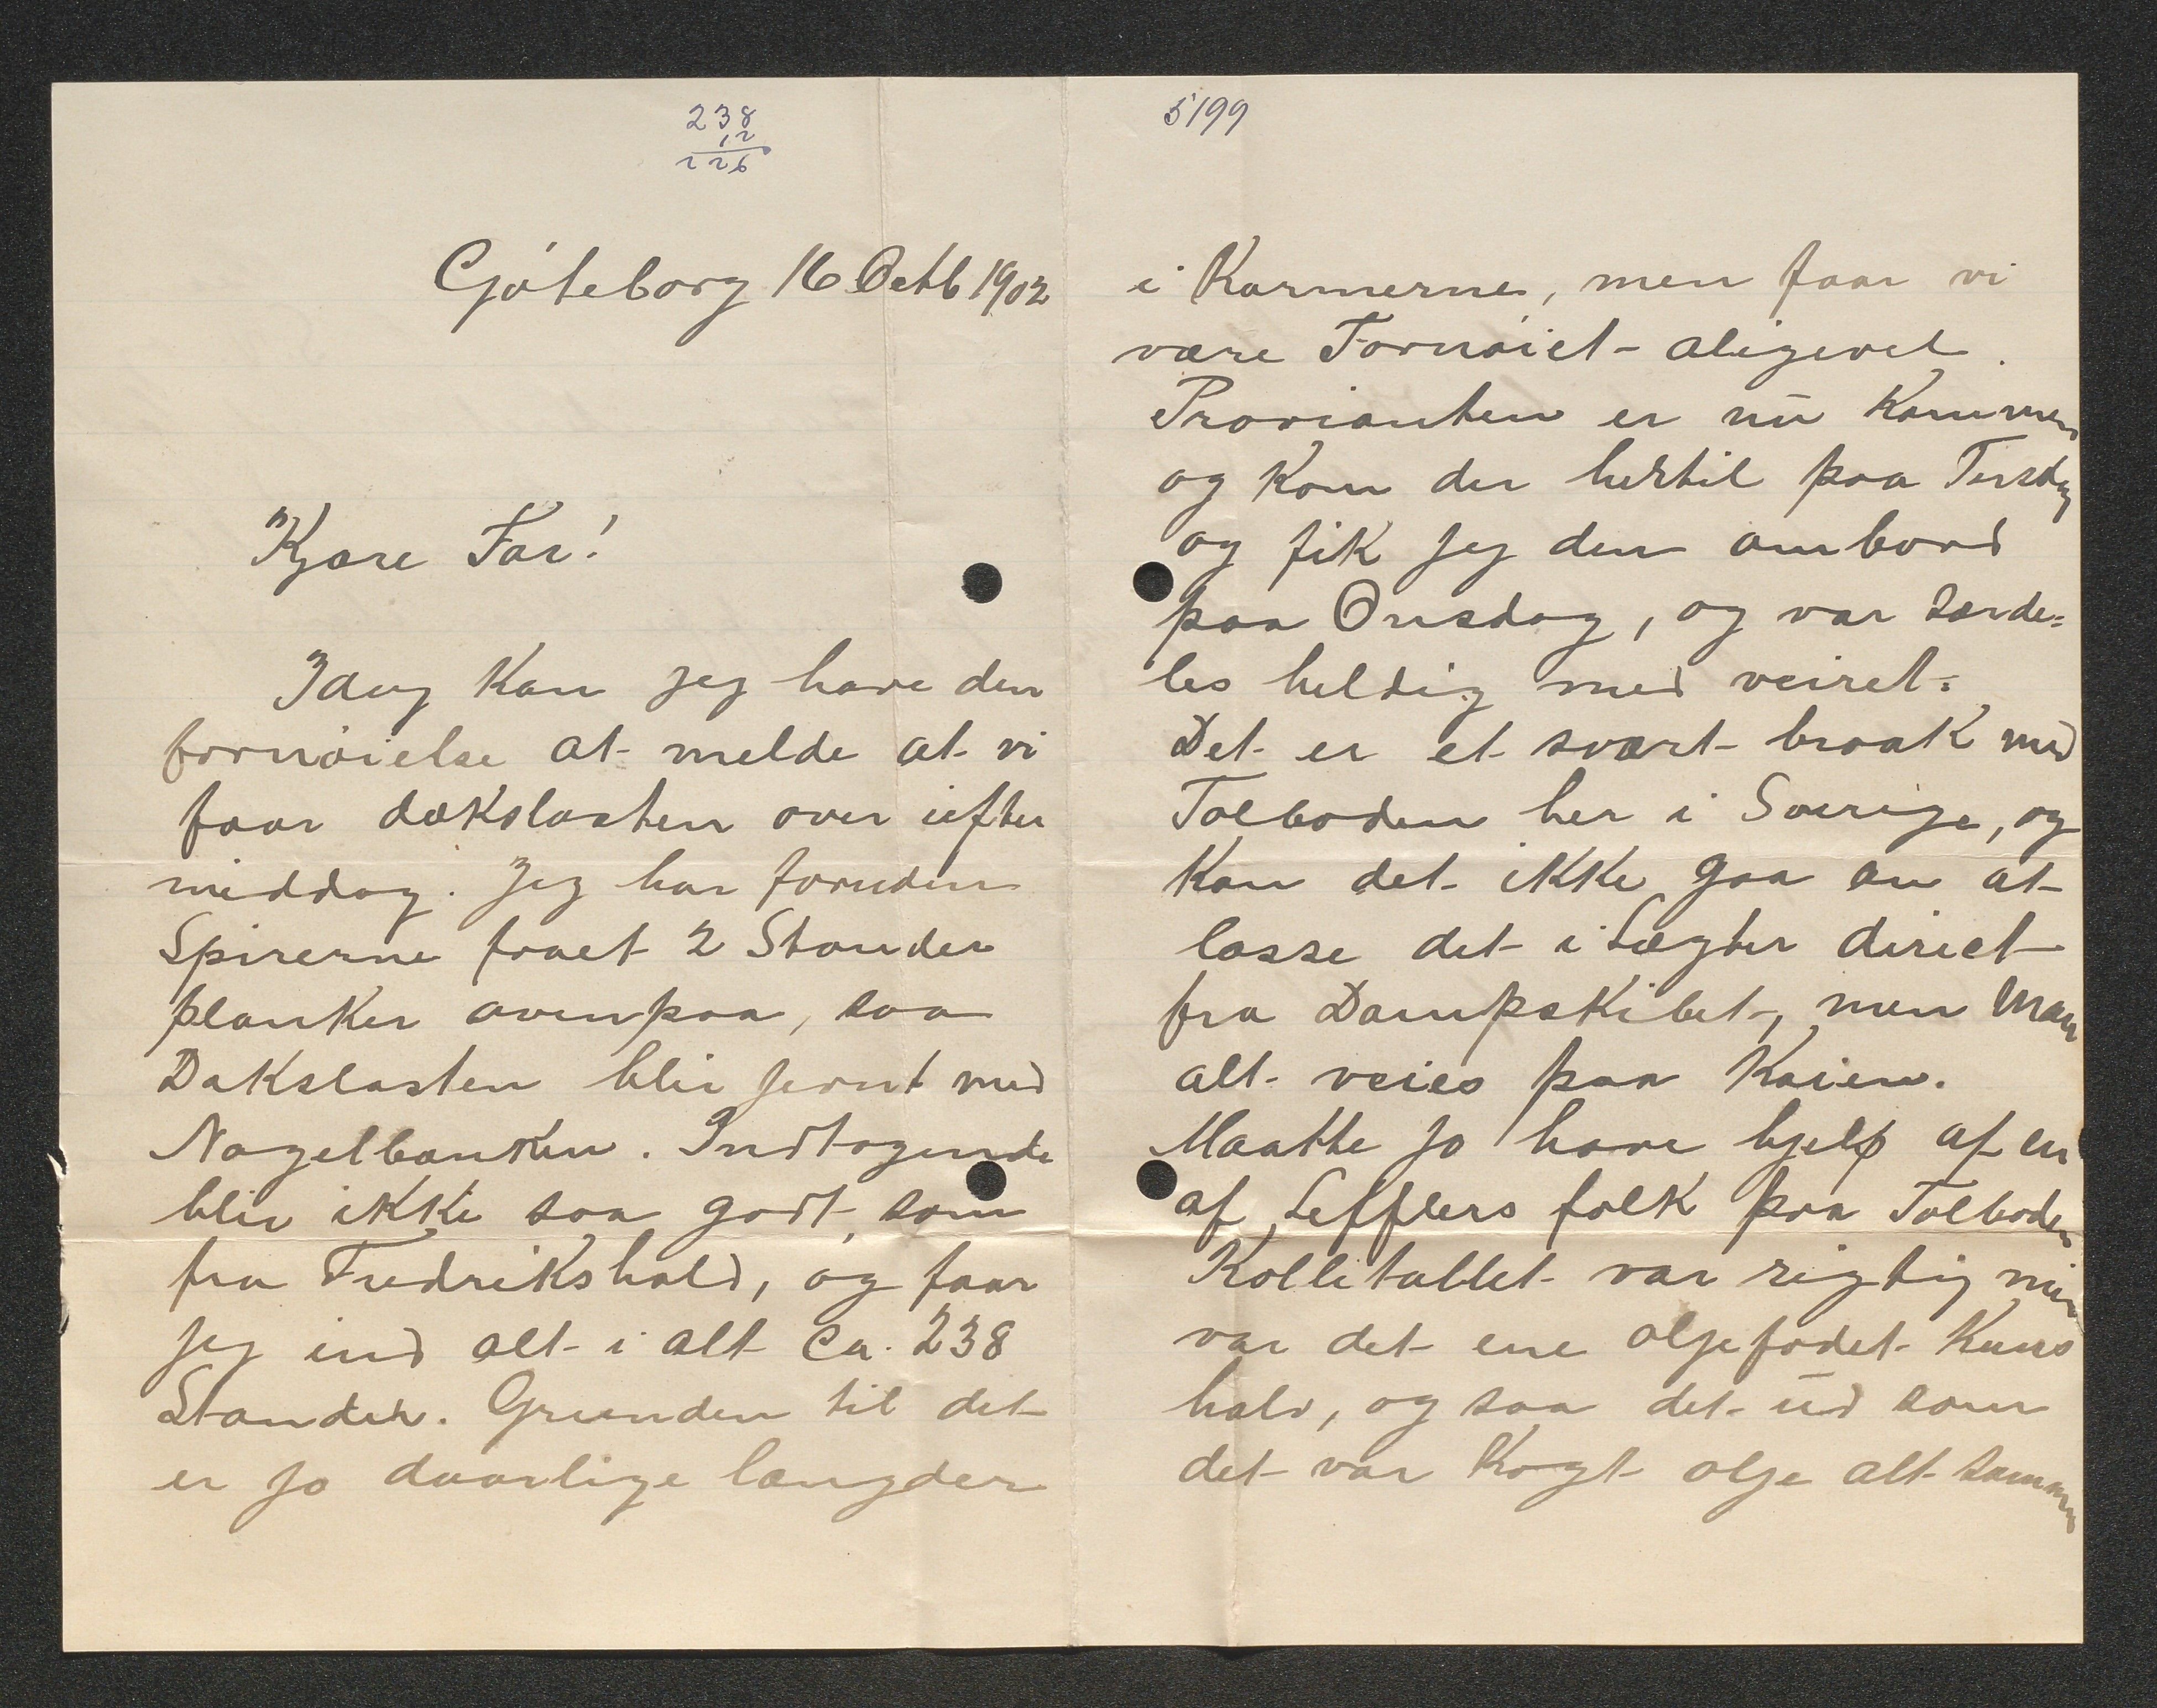 238
12
226
Göteborg 16 Octb 1902
Kjære Far!
Idag kan jeg have den
fornöielse at melde at vi
faar dækslasten over iefter
middag. Jeg har foruden
Spirerne faaet 2 Stander
planker ovenpaa, saa
Dækslasten blir jevnt med
Nagelbanken. Indtagende
blir ikke saa godt, som
fra Fredrikshald, og faar
jeg ind alt i alt ca. 238
Stander. Grunden til det
er jo daarlige længder
5199
i Karmerne, men faar vi
være Fornöiet aligevel.
Provianten er nu kommen
og kom der hertil paa Tirsdag
og fik jeg den ombord
paa Onsdag, og var særde=
les heldig med veiret.
Det er et svært braak med
Tolboden her i Sverige, og
kan det ikke gaa an at
losse det i Lægter direct
fra Dampskibet, men maa
alt veies paa Kaien.
Maatte jo have hjelp af en
af Lefflers folk paa Tolboden
Kollitallet var rigtig men
var det ene oljefadet kuns
halv, og saa det ud som
det var Kogt olje alt sammen